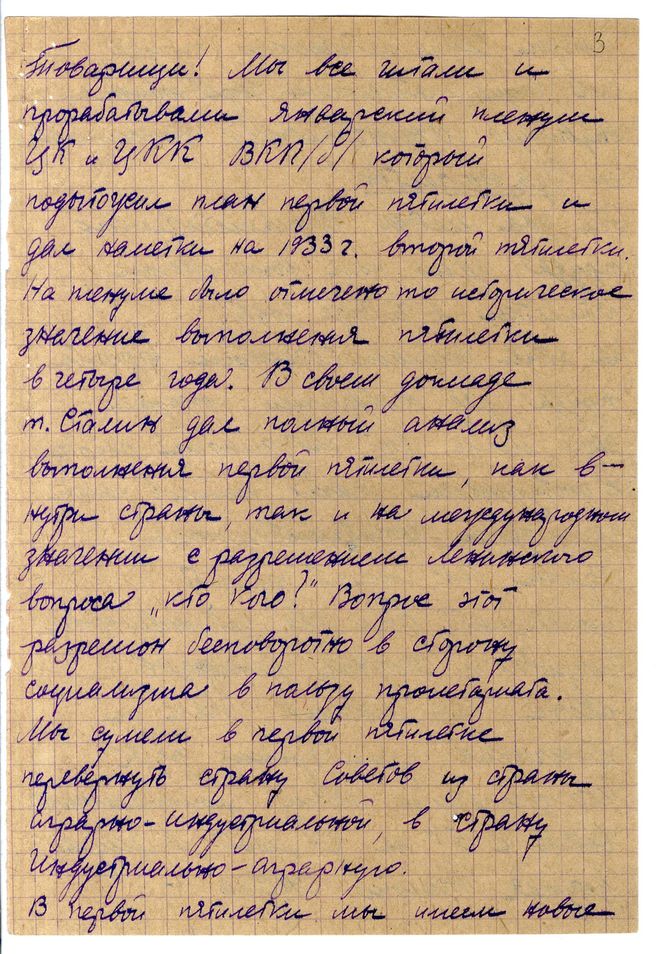 3
Товарищи! Мы все читали и
прорабатывали январский пленум
ЦК и ЦКК ВКП/б/ который
подытожил план первой пятилетки и
дал наметки на 1933 г. второй пятилетки.
На пленуме было отмечено то историческое
значение выполнения пятилетки
в четыре года. В своем докладе
т. Сталин дал полный анализ
выполнения первой пятилетки, как в-
нутри страны, так и на международном
значении с разрешением Ленинского
вопроса "кто кого?" Вопрос этот
разрешон бесповоротно в сторону
социализма в пользу пролетариата.
Мы сумели в первой пятилетке
перевернуть страну Советов из страны
аграрно-индустриальной, в страну
Индустриально-аграрную.
В первой пятилетки мы имеем новые